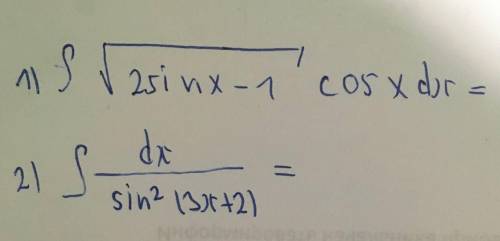 1) ∫ √(2sinx-1) cosx dx =
2) ∫ dx / sin² (3x+2) =